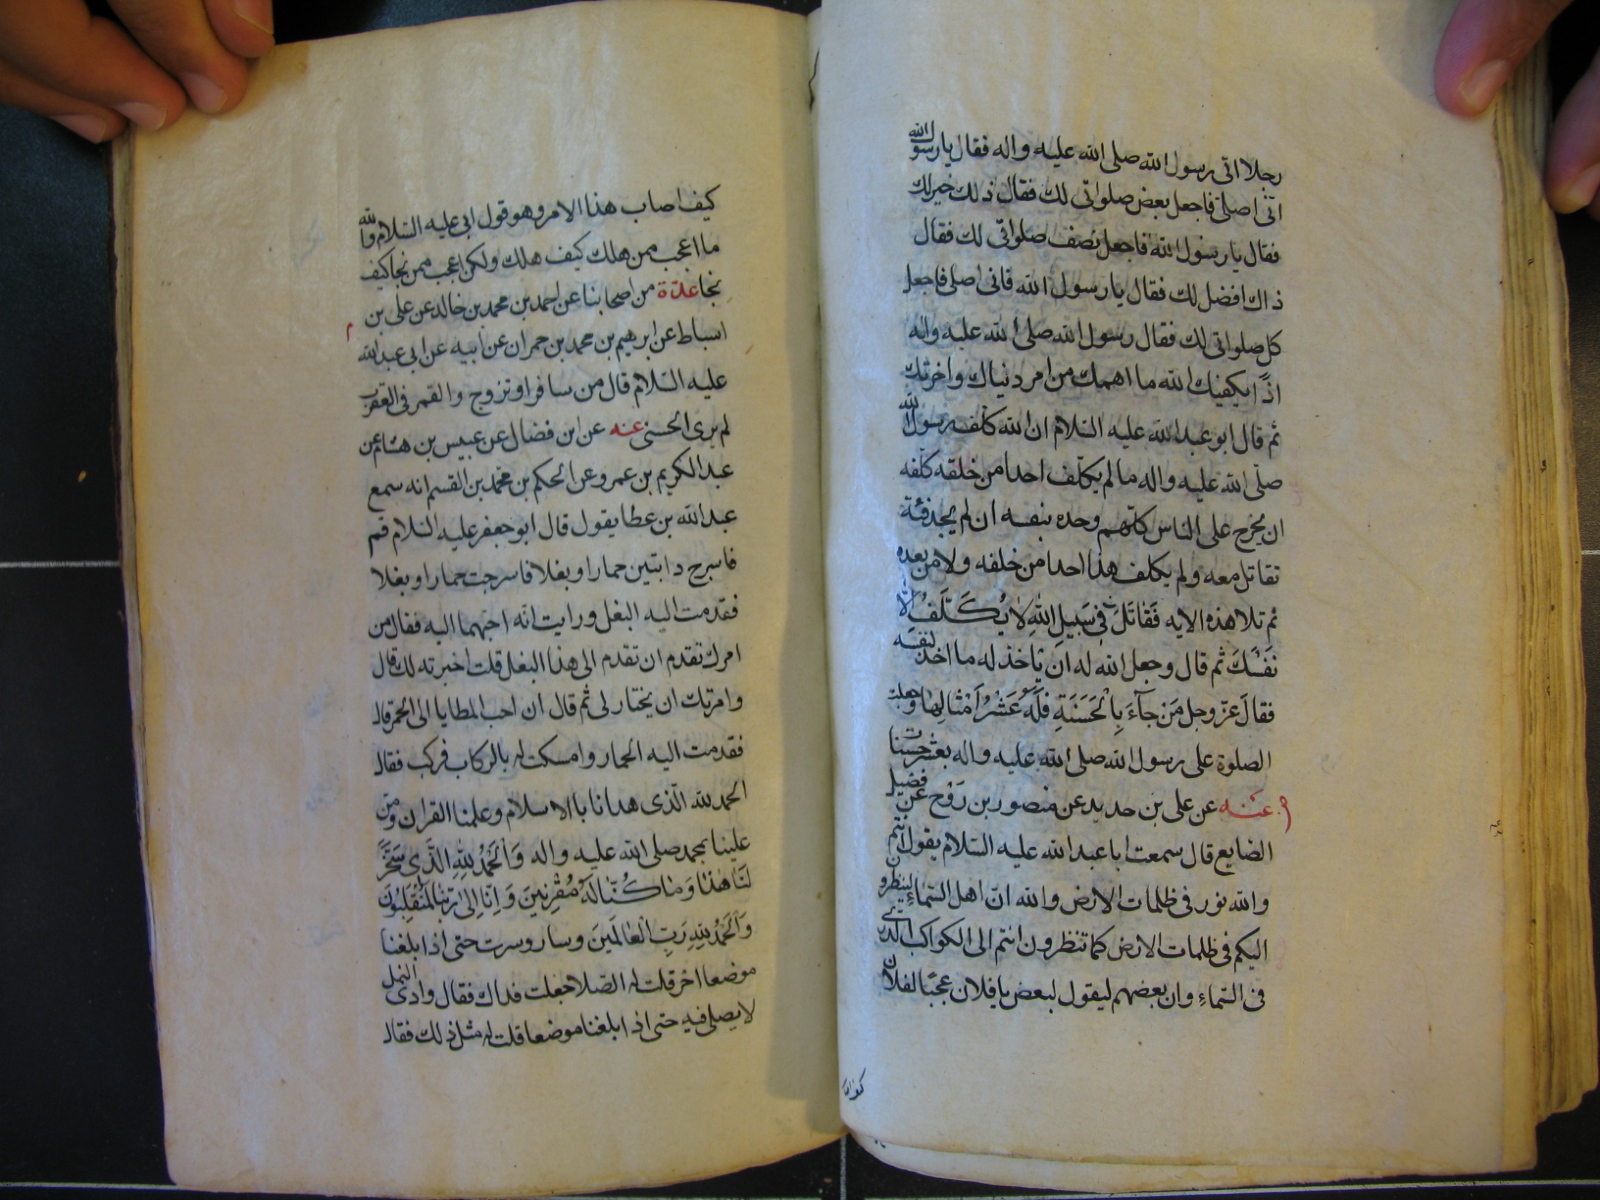 رجلا اتى رسول الله صلى الله عليه واله فقال يا رسول الله
انى اصلى فاجعل بعض صلواتى لك فقال ذلك خير لك
فقال يا رسول الله فاجعل نصف صلواتى لك فقال
ذاك افضل لك فقال يا رسول الله فانى اصلى فاجعل
كل صلواتى لك فقال رسول الله صلى الله عليه واله
اذًا يكفيك الله ما اهمك من امر دنياك واخرتك
ثم قال ابو عبد الله عليه السلام ان الله كلف رسول الله
صلى الله عليه واله ما لم يكلف احدا من خلقه كلفه
ان يخرج على الناس كلهم وحده بنفسه ان لم يجد فئة
تقاتل معه ولم يكلف هذا احدا من خلقه ولا من بعده
ثم تلا هذه الايه فَقَاتِلْ فى سَبِيلِ اللهِ لا يُكَلَّفُ الّا
نَفْسَكَ ثم قال وجعل الله له ان ياخذ له ما اخذ لنفسه
فقال عزّ وجل مَن جآءَ بِالْحَسَنَةِ فَلَهُ عَشْرُ اَمْثَالِهَا وجعلت
الصلوة على رسول الله صلى الله عليه واله بعشر حسنات
عنه عن على بن حديد عن منصور بن رَوْح عن فضيل
الصايع قال سمعت ابا عبد الله عليه السّلام يقول انتم
والله نور فى ظلمات الارض والله انّ اهل السّماء لينظرون
اليكم فى ظلمات الارض كما تنظرون انتم الى الكواكب الدرى
فى السّماءِ وان بعضهم ليقول لبعض يا فلان عجبًا لفلان
كيف اصاب هذا الامر وهو قول ابى عليه السّلام والله
ما اعجب ممن هلك كيف هلك ولكن اعجب ممن نجا كيف
نجا عدّة من اصحابنا عن احمد بن محمد بن خالد عن على بن
اسباط عن ابرهيم بن محمد بن حمران عن ابيه عن ابى عبد الله
عليه السّلام قال من سافر او تزوج والقمر فى العقرب
لم يرى الحسنى عنه عن ابن فضال عن عبيس بن هشام عن
عبد الكريم بن عمرو عن الحكم بن محمد بن القسم انه سمع
عبد الله بن عطا يقول قال ابو جعفر عليه السلام قم
فاسرج دابتين حمارا وبغلا فاسرجت حمارا وبغلا
فقدمت اليه البغل ورايت انّه احبهما اليه فقال من
امرك تقدم ان تقدم الى هذا البغل قلت اخبرته لك قال
وامرتك ان يختار لى ثم قال ان احب المطايا الى الحمر قال
فقدمت اليه الحمار وامسكت له بالركاب فركب فقال
الحمد لله الّذى هدانا با الاسلام وعلمنا القران ومَن
علينا بمحمد صلى الله عليه واله وَالْحَمْدُ لِلهِ الَّذِى سَخَّرَ
لَنَا هٰذَا وَمَا كُنَّا لَهُ مُقْرِنِينَ وَاِنّا اِلى رَبِّنَا لَمُنْقَلِبُونَ
وَالْحَمْدُ لِلهِ رَبِّ الْعَالَمِينَ وسار وسرت حتى اذا بلغنا
موضعا اخر قلت له الصّلا جعلت فداك فقال وادى النمل
لا يصلى فيه حتى اذا بلغنا موضعا قلت له مثل ذلك فقال